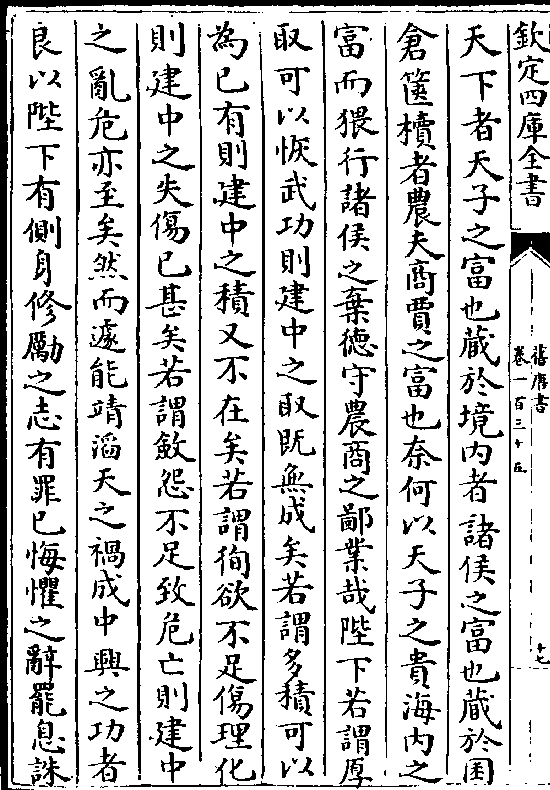 欽定四庫全書
舊唐書
卷一百三十五
十七
天下者天子之富也藏於境内者諸侯之富也藏於囷
倉篋櫝者農夫商賈之富也奈何以天子之貴海内之
富而猥行諸侯之棄德守農商之鄙業哉陛下若謂厚
取可以恢武功則建中之取既無成矣若謂多積可以
為已有則建中之積又不在矣若謂徇欲不足傷理化
則建中之失傷已甚矣若謂斂怨不足致危亡則建中
之亂危亦至矣然而遽能靖滔天之禍成中興之功者
良以陛下有側身修勵之志有罪已悔懼之辭罷息誅